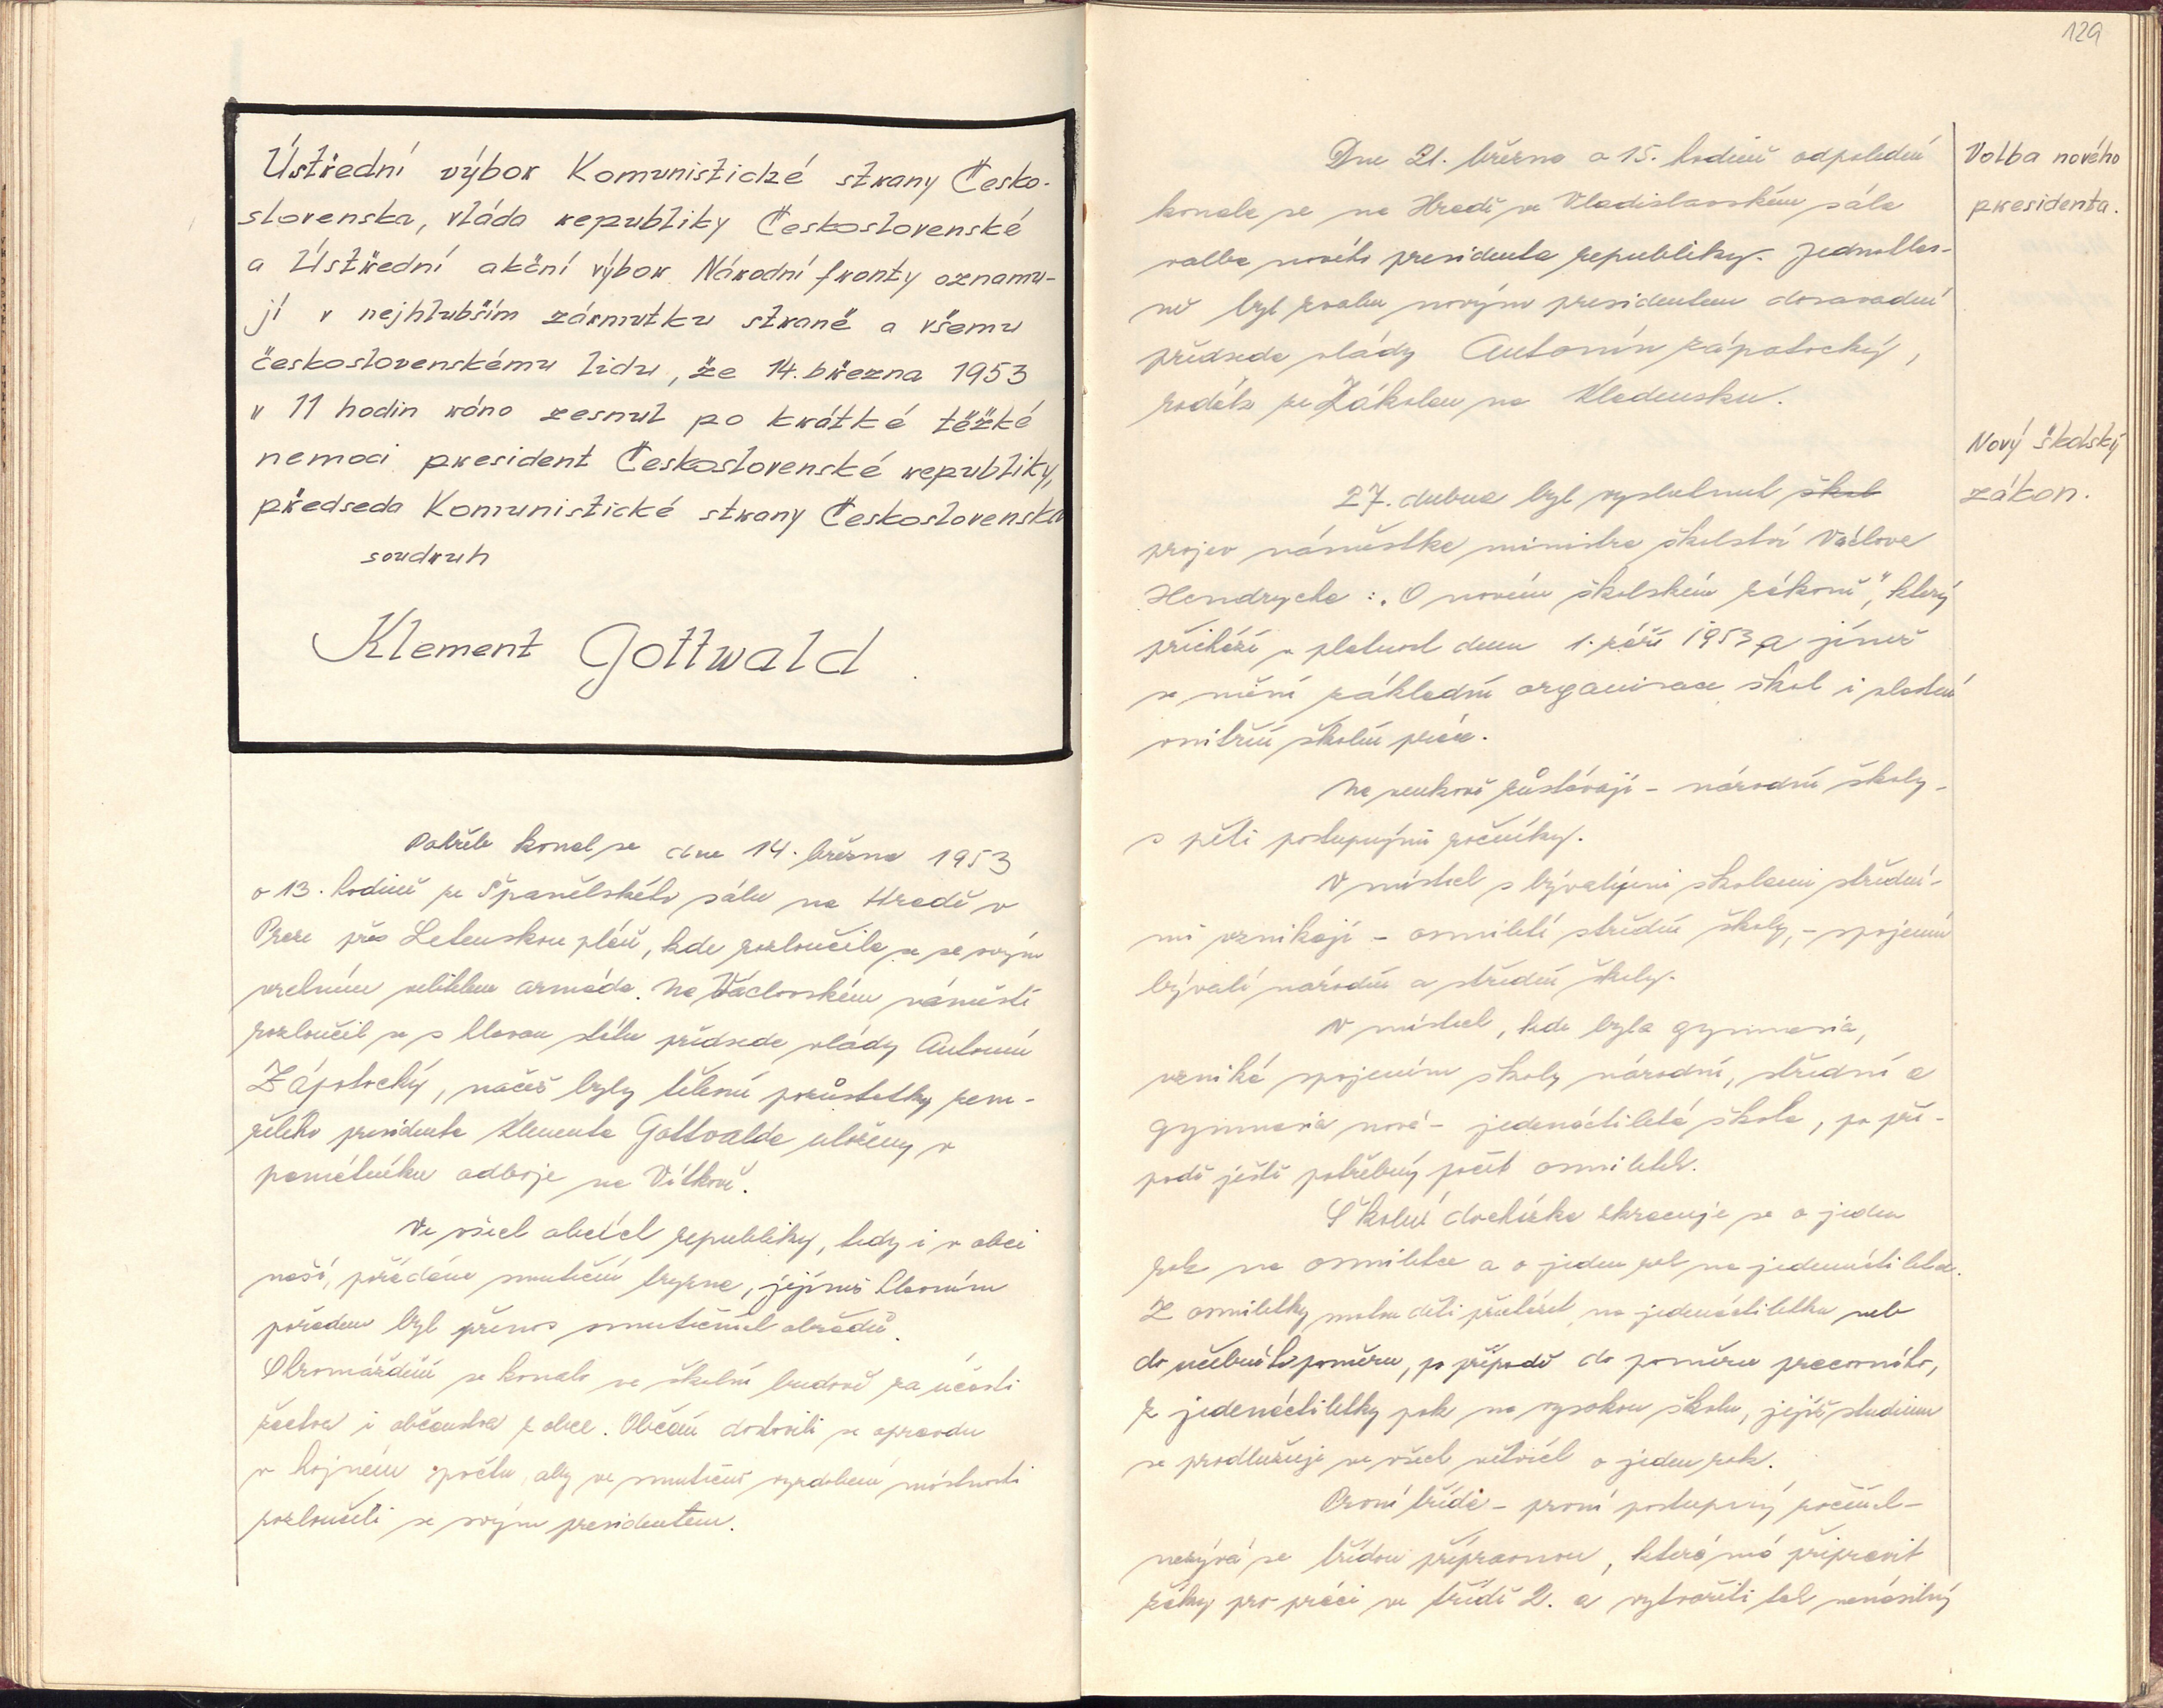 Ústřední výbor Komunistické strany Česko-
slovenska, vláda republiky Československé
a Ústřední akční výbor Národní fronty oznamu-
jí v nejhlubším zármutku straně a všemu
československému lidu, že 14. března 1953
v 11 hodin ráno zesnul po krátké těžké
nemoci president Československé republiky,
předseda Komunistické strany Československa
soudruh
Klement Gottwald
Pohřeb konal se dne 14. března 1953
o 13. hodině ze Španělského sálu na Hradě v
Praze přes Letenskou pláň, kde rozloučila se se svým
vrchním velitelem armáda. Na Václavském náměstí
rozloučil se s hlavou státu předseda vlády Antonín
Zápotocký, načež byly tělesné pozůstatky zem-
řelého presidenta Klementa Gottwalda uloženy v
památníku odboje na Vítkově.
Ve všech obcích republiky, tedy i v obci
naší, pořádána smuteční tryzna, jejímž hlavním
pořadem byl přenos smutečních obřadů.
Shromáždění se konalo ve školní budově za účasti
žactva i občanstva z obce. Občané dostavili se opravdu
v hojném počtu, aby ve smutečně vyzdobené místnosti
rozloučili se svým presidentem.
129
Dne 21. března o 15. hodině odpolední
konala se na Hradě ve Vladislavském sále
volba nového presidenta republiky. Jednohlas-
ně byl zvolen novým presidentem dosavadní
předseda vlády Antonín Zápotocký,
rodák ze Zákolan na Kladensku.
Volba nového
presidenta.
27. dubna byl vyslechnut škol
projev náměstka ministra školství Václava
Hendrycha: „O novém školském zákoně", který
přichází v platnost dnem 1. září 1953 a jímž
se mění základní organisace škol i složení
vnitřní školní práce.
Nový školský
zákon.
Na venkově zůstávají - národní školy -
s pěti postupnými ročníky.
V místech s bývalými školami střední-
mi vznikají - osmileté střední školy, - spojením
bývalé národní a střední školy.
V místech, kde byla gymnasia,
vzniká spojením školy národní, střední a
gymnasia nová - jedenáctiletá škola, po pří-
padě ještě potřebný počet osmiletek.
Školní docházka zkracuje se o jeden
rok na osmiletce a o jeden rok na jedenáctiletce.
Z osmiletky mohou děti přecházet na jedenáctiletku nebo
do učebního poměru, po případě do poměru pracovního,
z jedenáctiletky pak na vysokou školu, jejíž studium
se prodlužuje ve všech větvích o jeden rok.
První třída - první postupný ročník -
nazývá se třídou přípravnou, která má připravit
žáky pro práci ve třídě 2. a vytvořiti tak nenásilný